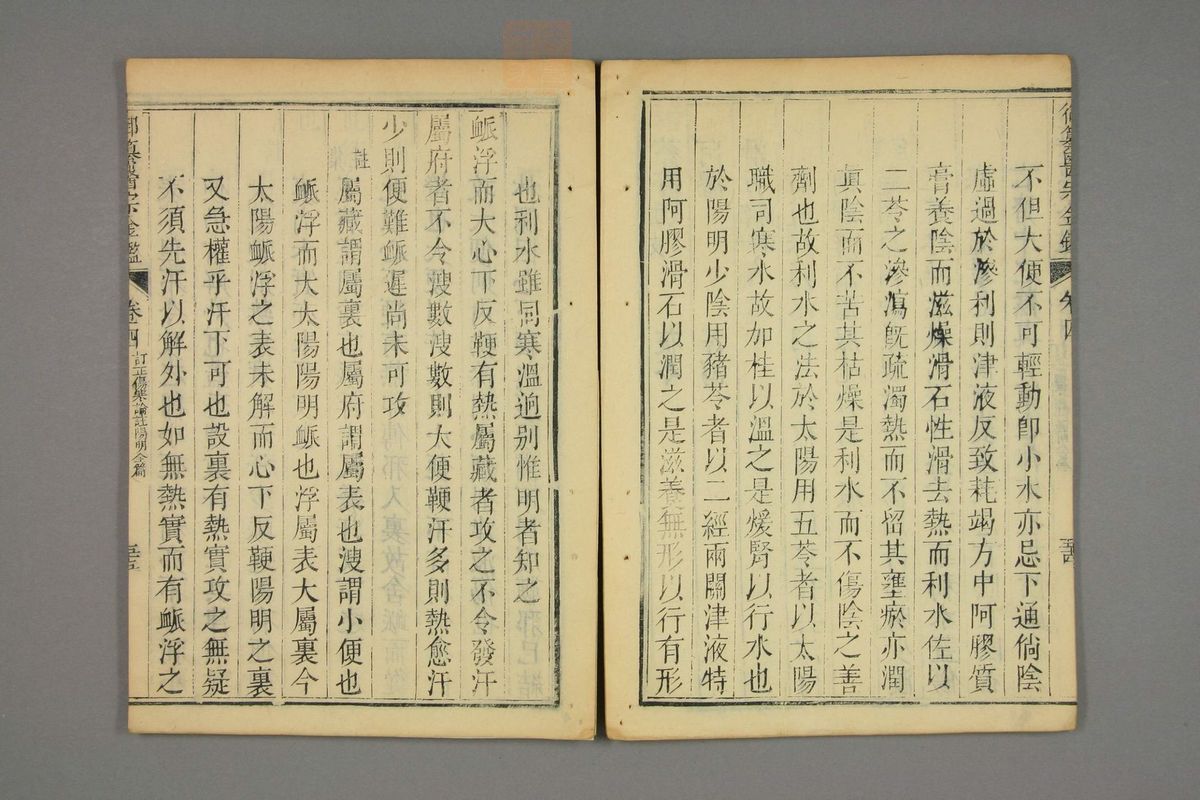 御纂醫宗金鑑
卷四
不但大便不可輕動卽小水亦忌下通倘陰
虛過於滲利則津液反致耗竭方中阿膠質
膏養陰而滋燥滑石性滑去熱而利水佐以
二苓之滲瀉旣疏濁熱而不留其壅瘀亦潤
眞陰而不苦其枯燥是利水而不傷陰之善
劑也故利水之法於太陽用五苓者以太陽
職司寒水故加桂以溫之是煖腎以行水也
於陽明少陰用豬苓者以二經兩關津液特
用阿膠滑石以潤之是滋養無形以行有形
也利水雖同寒溫迥別惟明者知之
䘑浮而大心下反鞕有熱屬藏者攻之不令發汗
屬府者不令溲數溲數則大便鞕汗多則熱愈汗
少則便難䘑遲尚未可攻
註屬藏謂屬裏也屬府謂屬表也溲謂小便也
䘑浮而大太陽陽明䘑也浮屬表大屬裏今
太陽䘑浮之表未解而心下反鞕陽明之裏
又急權乎汗下可也設裏有熱實攻之無疑
不須先汗以解外也如無熱實而有䘑浮之
御纂醫宗金鑑
卷四
訂正傷寒論註陽明全篇